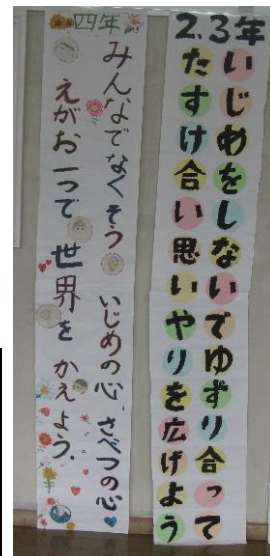 2.3年
いじめをしないでゆずり合って
たすけ合い思いやりを広げよう
四年
みんなでなくそう いじめの心、さべつの心
えがお一つで 世界を かえよう.